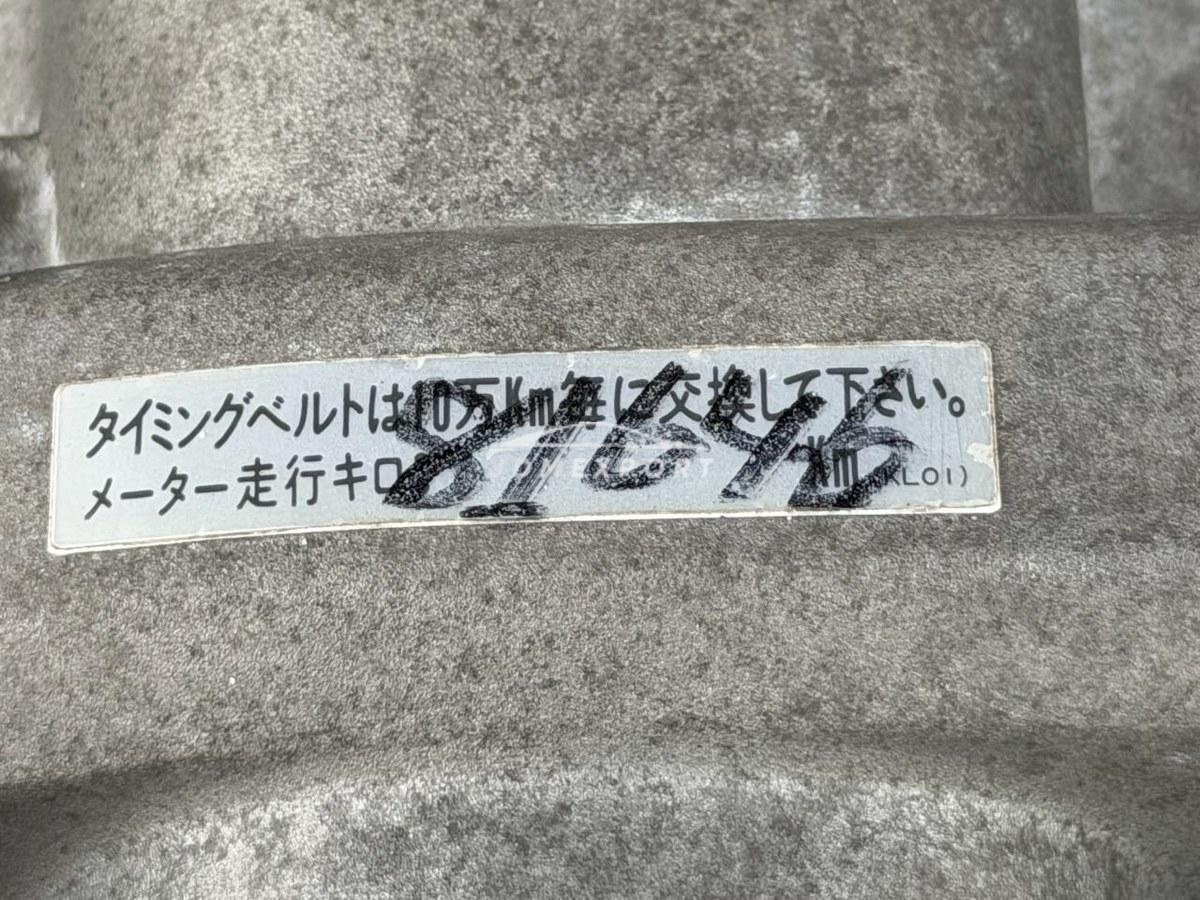 タイミングベルトは10万Km毎に交換して下さい。
メーター走行キロ 81646 Km (KL01)